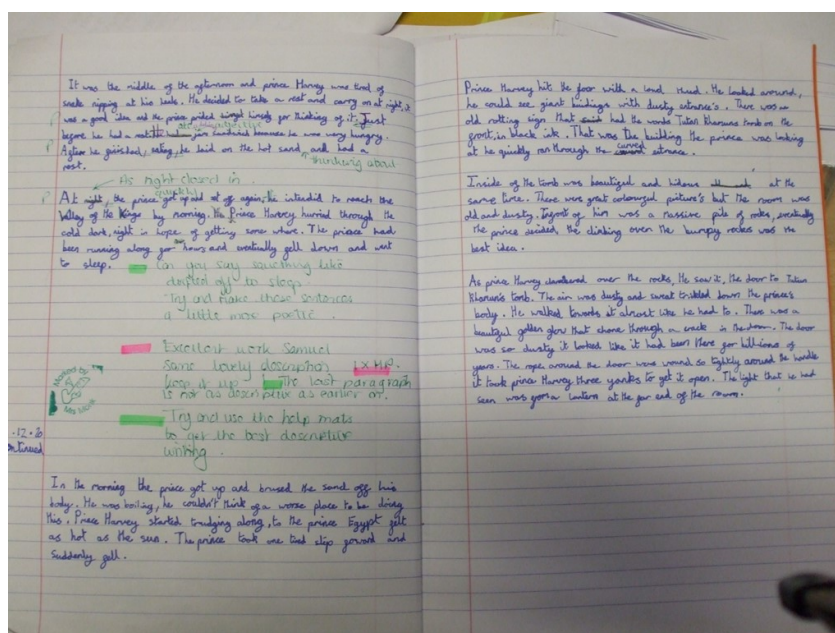 It was the middle of the afternoon and prince Harvey was tired of
snake nipping at his heals. He decided to take a rest and carry on at night, it
was a good idea and the prince prided himself for thinking of it. Just
before he had a rest he jam sandwich because he was very hungry.
After he finished, eating, he laid on the hot sand, and had a
rest.
thinking about
As night closed in.
quickly
At night, the prince got up and set off again, he intended to reach the
Valley of the Kings by morning. The Prince Harvey hurried through the
cold dark, night in hope of getting some where. The prince had
been running along for hours and eventually fell down and went
to sleep.
Can you say something like
drifted off to sleep.
Try and make these sentences
a little more poetic.
Excellent work Samuel
some lovely description 1 x HP.
keep it up. The last paragraph
is not as descriptive as earlier on.
Marked by
Miss Moore
Try and use the help mats
to get the best descriptive
writing.
In the morning the prince got up and brused the sand off his
body. He was boiling, he couldn't think of a worse place to be doing
this. Prince Harvey started trudging along, to the prince Egypt felt
as hot as the sun. The prince took one tired step foward and
suddenly fell.
Prince Harvey hit the floor with a loud thud. He looked around,
he could see giant buildings with dusty entrance's. There was an
old rotting sign that had the words Tutan Khamuns tomb on the
front, in black ink. That was the building the prince was looking
at he quickly ran through the curved entrance.
Inside of the tomb was beautiful and hideous at the
same time. There were great coloured picture's but the room was
old and dusty. Infront of him was a massive pile of rocks, eventually
the prince decided, the climbing over the bumpy rocks was the
best idea.
As prince Harvey clambered over the rocks, He saw it, the door to Tutan
Khamun's tomb. The air was dusty and sweat trickled down the prince's
body. He walked towards it almost like he had to. There was a
beautiful golden glow that shone through a crack in the door. The door
was so dusty it looked like it had been there for billions of
years. The rope around the door were wound so tightly around the handle
it took prince Harvey three yanks to get it open. The light that he had
seen was from a lantern at the far end of the room.